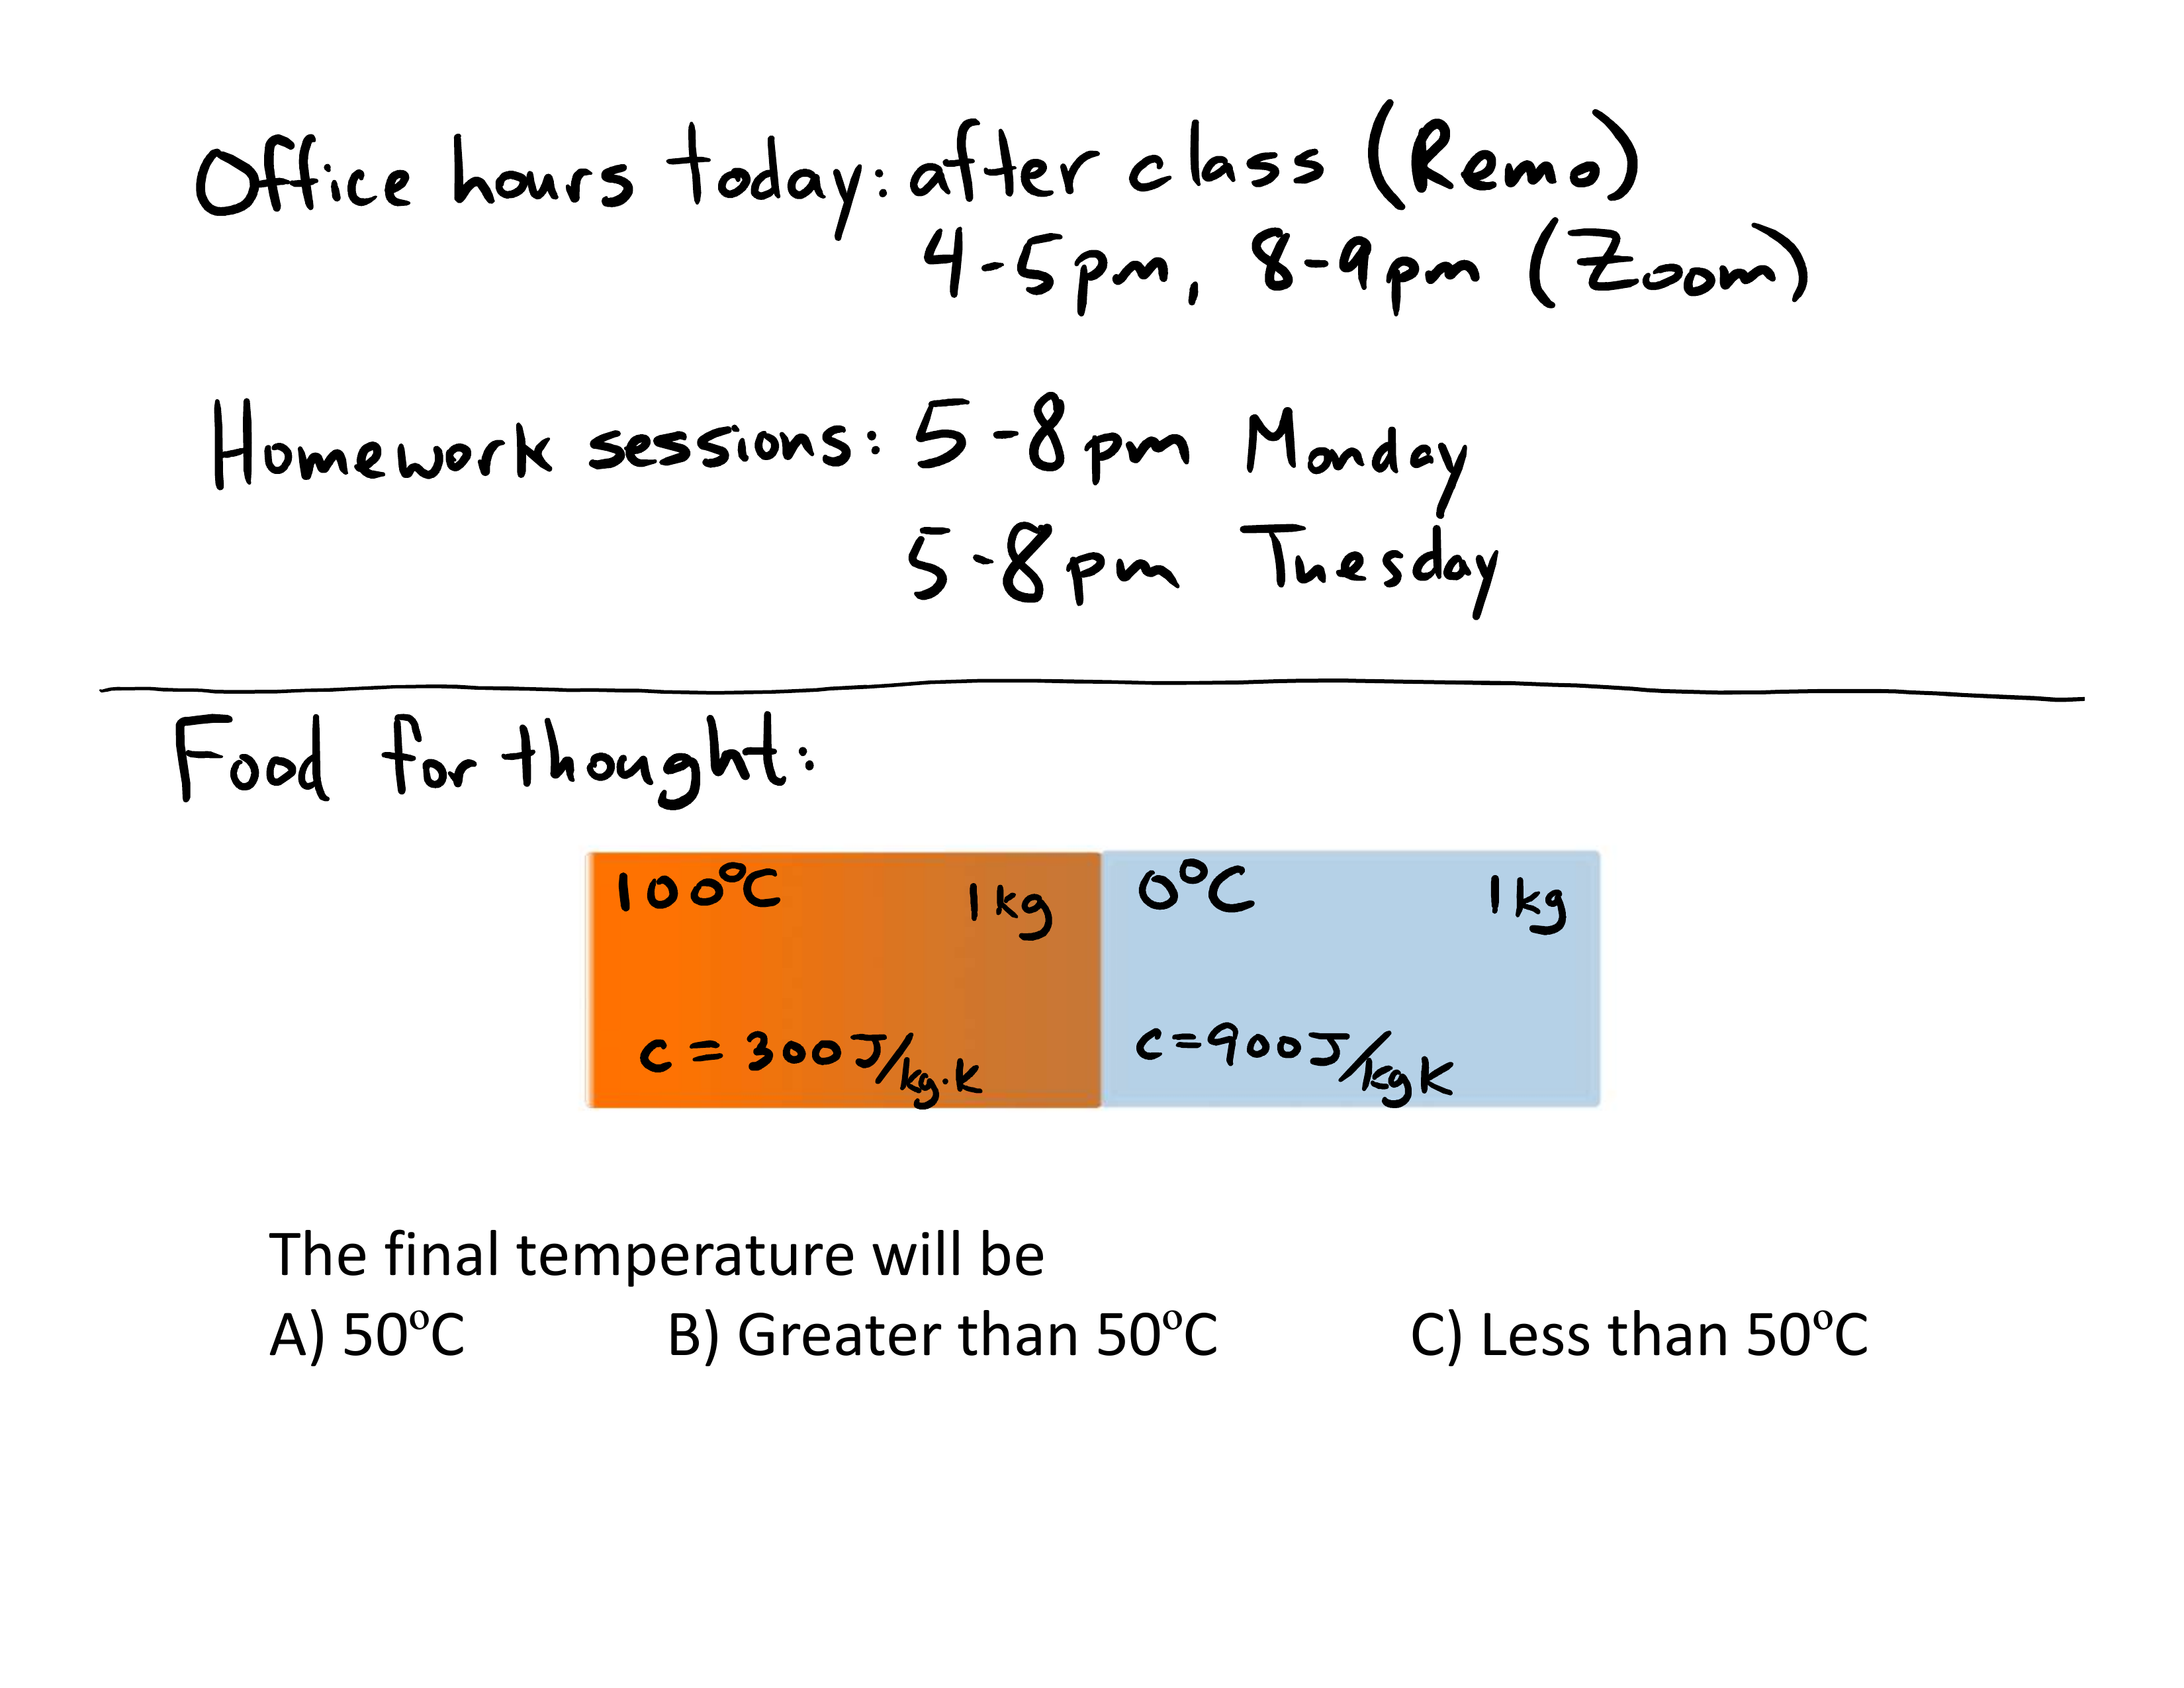 Office hours today: after class (Remo)
4-5pm, 8-9pm (Zoom)
Homework sessions: 5-8pm Monday
5-8pm Tuesday
Food for thought:
100°C 1kg 0°C 1kg
c = 300J/kg·K c=900J/kgK
The final temperature will be
A) 50°C B) Greater than 50°C C) Less than 50°C